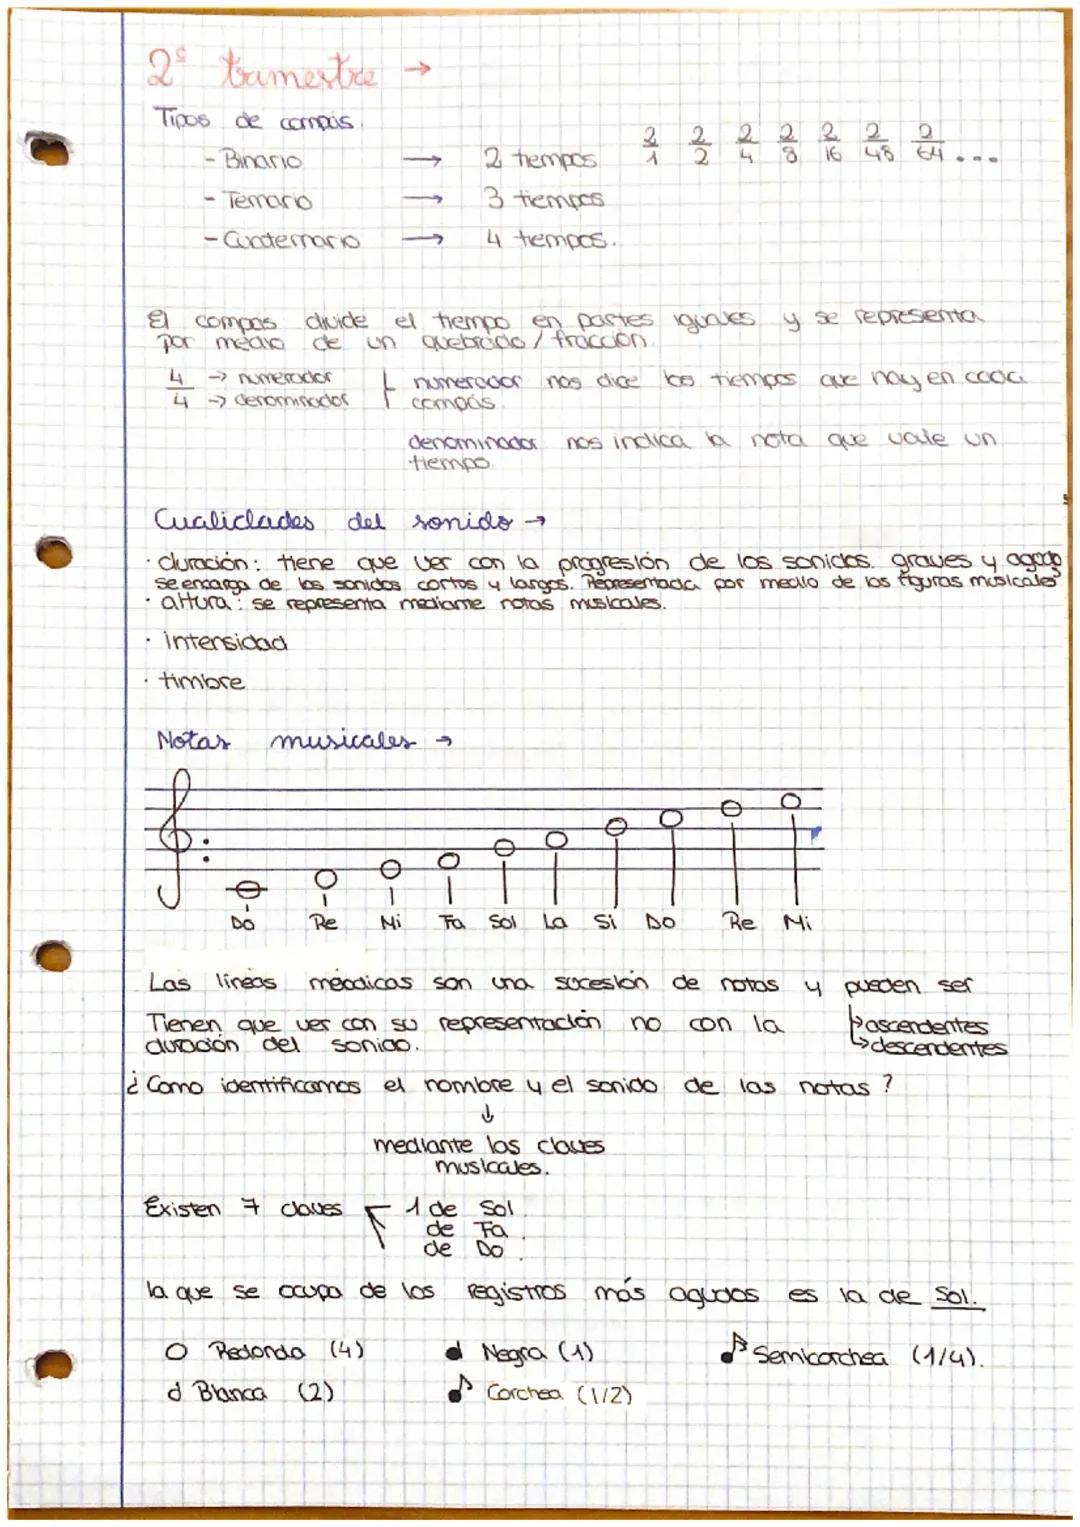 2º trimestre →
Tipos de compás.
- Binario → 2 tiempos 2/1 2/2 2/4 2/8 2/16 2/48 2/64 ...
- Ternario → 3 tiempos
- Cuaternario → 4 tiempos.
El compas divide el tiempo en partes iguales y se representa
por medio de un quebrado / fracción
4 → numerador numerador nos dice los tiempos que hay en cada
4 → denominador compás.
denominador nos indica la nota que vale un
tiempo
Cualidades del sonido →
· duración: tiene que ver con la progresión de los sonidos graves y agudo
se encarga de los sonidos cortos y largos. Representada por medio de las figuras musicales
· altura: se representa mediante notas musicales.
· intensidad
· timbre
Notas musicales →
Do Re Mi Fa Sol La Si Do Re Mi
Las líneas melódicas son una sucesión de notas y pueden ser
Tienen que ver con su representación no con la ↳ascendentes
duración del sonido. ↳descendentes
¿Como identificamos el nombre y el sonido de las notas?
↓
mediante las claves
musicales.
Existen 7 claves 1 de Sol.
de Fa.
de Do.
la que se ocupa de los registros más agudos es la de Sol.
Redonda (4) Negra (1) Semicorchea (1/4).
Blanca (2) Corchea (1/2)